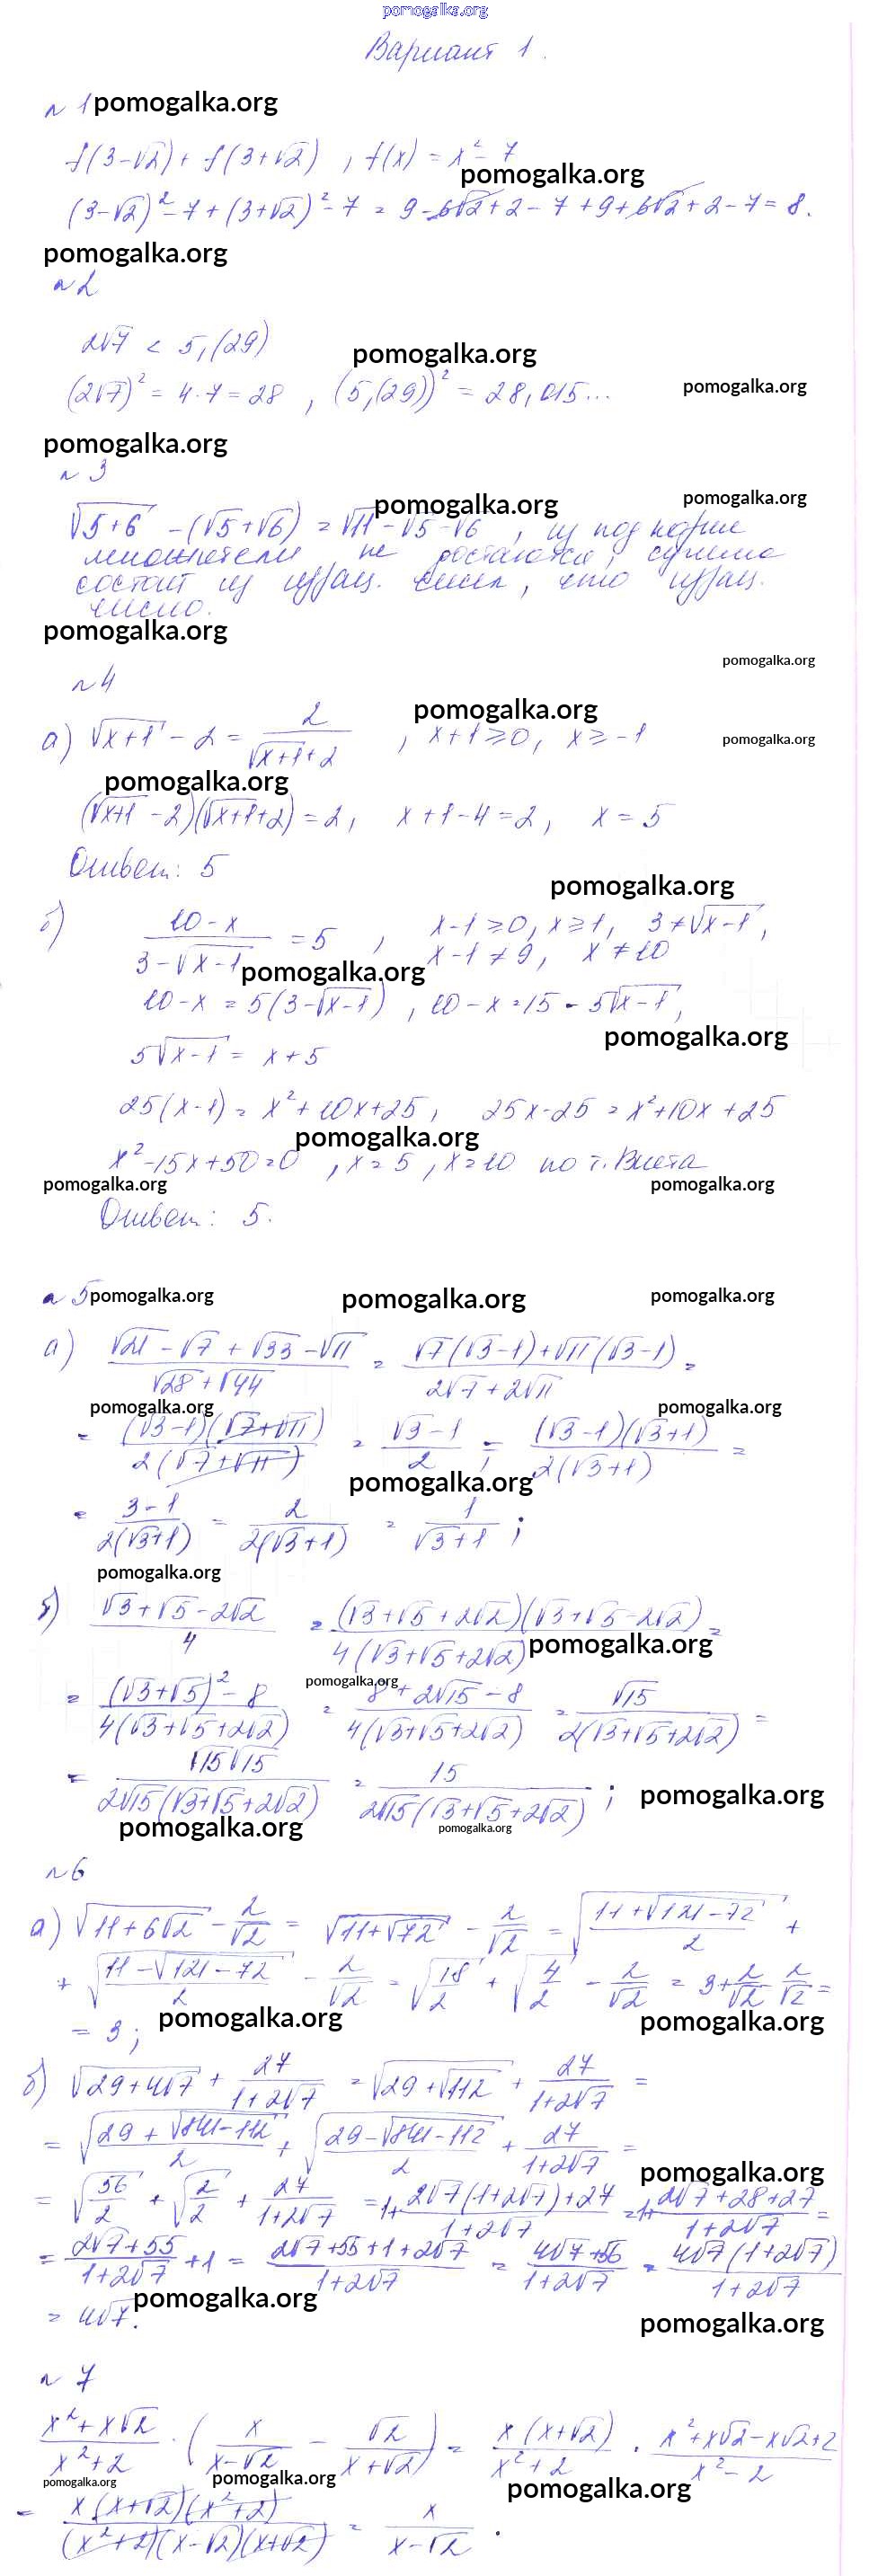 pomogalka.org
Вариант 1.
n 1 pomogalka.org
f(3-√2) + f(3+√2), f(x) = x² - 7
pomogalka.org
(3-√2)² - 7 + (3+√2)² - 7 = 9 - 6√2 + 2 - 7 + 9 + 6√2 + 2 - 7 = 8.
pomogalka.org
n 2
2√7 < 5,(29)
pomogalka.org
(2√7)² = 4·7 = 28, (5,(29))² = 28,015... pomogalka.org
pomogalka.org
n 3
pomogalka.org pomogalka.org
√(5+6) - (√5+√6) = √11 - √5 - √6, из под корня
множители не достаются, сумма
состоит из иррац. чисел, что иррац.
число.
pomogalka.org
pomogalka.org
n 4
pomogalka.org
а) √(x+1) - 2 = 2/(√(x+1)+2), x+1 ≥ 0, x ≥ -1 pomogalka.org
pomogalka.org
(√(x+1) - 2)(√(x+1)+2) = 2, x+1-4 = 2, x = 5
Ответ: 5
pomogalka.org
б) (10-x)/(3-√(x-1)) = 5, x-1 ≥ 0, x ≥ 1, 3 ≠ √(x-1),
x-1 ≠ 9, x ≠ 10
pomogalka.org
10-x = 5(3-√(x-1)), 10-x = 15 - 5√(x-1),
pomogalka.org
5√(x-1) = x+5
25(x-1) = x²+10x+25, 25x-25 = x²+10x+25
pomogalka.org
x²-15x+50=0, x=5, x=10 по т. Виета
pomogalka.org pomogalka.org
Ответ: 5.
n 5 pomogalka.org pomogalka.org pomogalka.org
а) (√21 - √7 + √33 - √11)/(√28 + √44) = (√7(√3-1)+√11(√3-1))/(2√7+2√11) =
pomogalka.org pomogalka.org
= ((√3-1)(√7+√11))/(2(√7+√11)) = (√3-1)/2; ((√3-1)(√3+1))/(2(√3+1)) =
pomogalka.org
= (3-1)/(2(√3+1)) = 2/(2(√3+1)) = 1/(√3+1);
pomogalka.org
б) (√3+√5-2√2)/4 = ((√3+√5+2√2)(√3+√5-2√2))/(4(√3+√5+2√2)) =
pomogalka.org
pomogalka.org
= ((√3+√5)²-8)/(4(√3+√5+2√2)) = (8+2√15-8)/(4(√3+√5+2√2)) = √15/(2(√3+√5+2√2)) =
= (√15√15)/(2√15(√3+√5+2√2)) = 15/(2√15(√3+√5+2√2)); pomogalka.org
pomogalka.org pomogalka.org
n 6
а) √(11+6√2) - 2/√2 = √(11+√72) - 2/√2 = √((11+√(121-72))/2) +
+ √((11-√(121-72))/2) - 2/√2 = √(18/2) + √(4/2) - 2/√2 = 3+2/√2 2/√2 =
pomogalka.org pomogalka.org
= 3;
б) √(29+4√7) + 27/(1+2√7) = √(29+√112) + 27/(1+2√7) =
= √((29+√(841-112))/2) + √((29-√(841-112))/2) + 27/(1+2√7) =
pomogalka.org
= √(56/2) + √(2/2) + 27/(1+2√7) = 1+(2√7(1+2√7)+27)/(1+2√7) = 1+(2√7+28+27)/(1+2√7) =
= (2√7+55)/(1+2√7) + 1 = (2√7+55+1+2√7)/(1+2√7) = (4√7+56)/(1+2√7) = (4√7(1+2√7))/(1+2√7)
pomogalka.org
= 4√7.
pomogalka.org
n 7
(x²+x√2)/(x²+2) · (x/(x-√2) - √2/(x+√2)) = (x(x+√2))/(x²+2) · (x²+x√2-x√2+2)/(x²-2)
pomogalka.org pomogalka.org pomogalka.org
= (x(x+√2)(x²+2))/((x²+2)(x-√2)(x+√2)) = x/(x-√2).